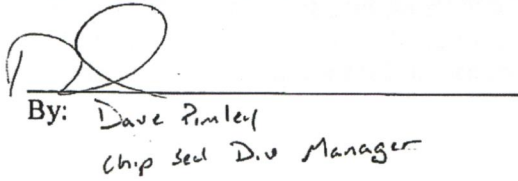 By: Dave Pimley
Chip Seal Div Manager